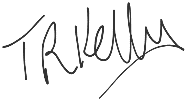 TR Kelly